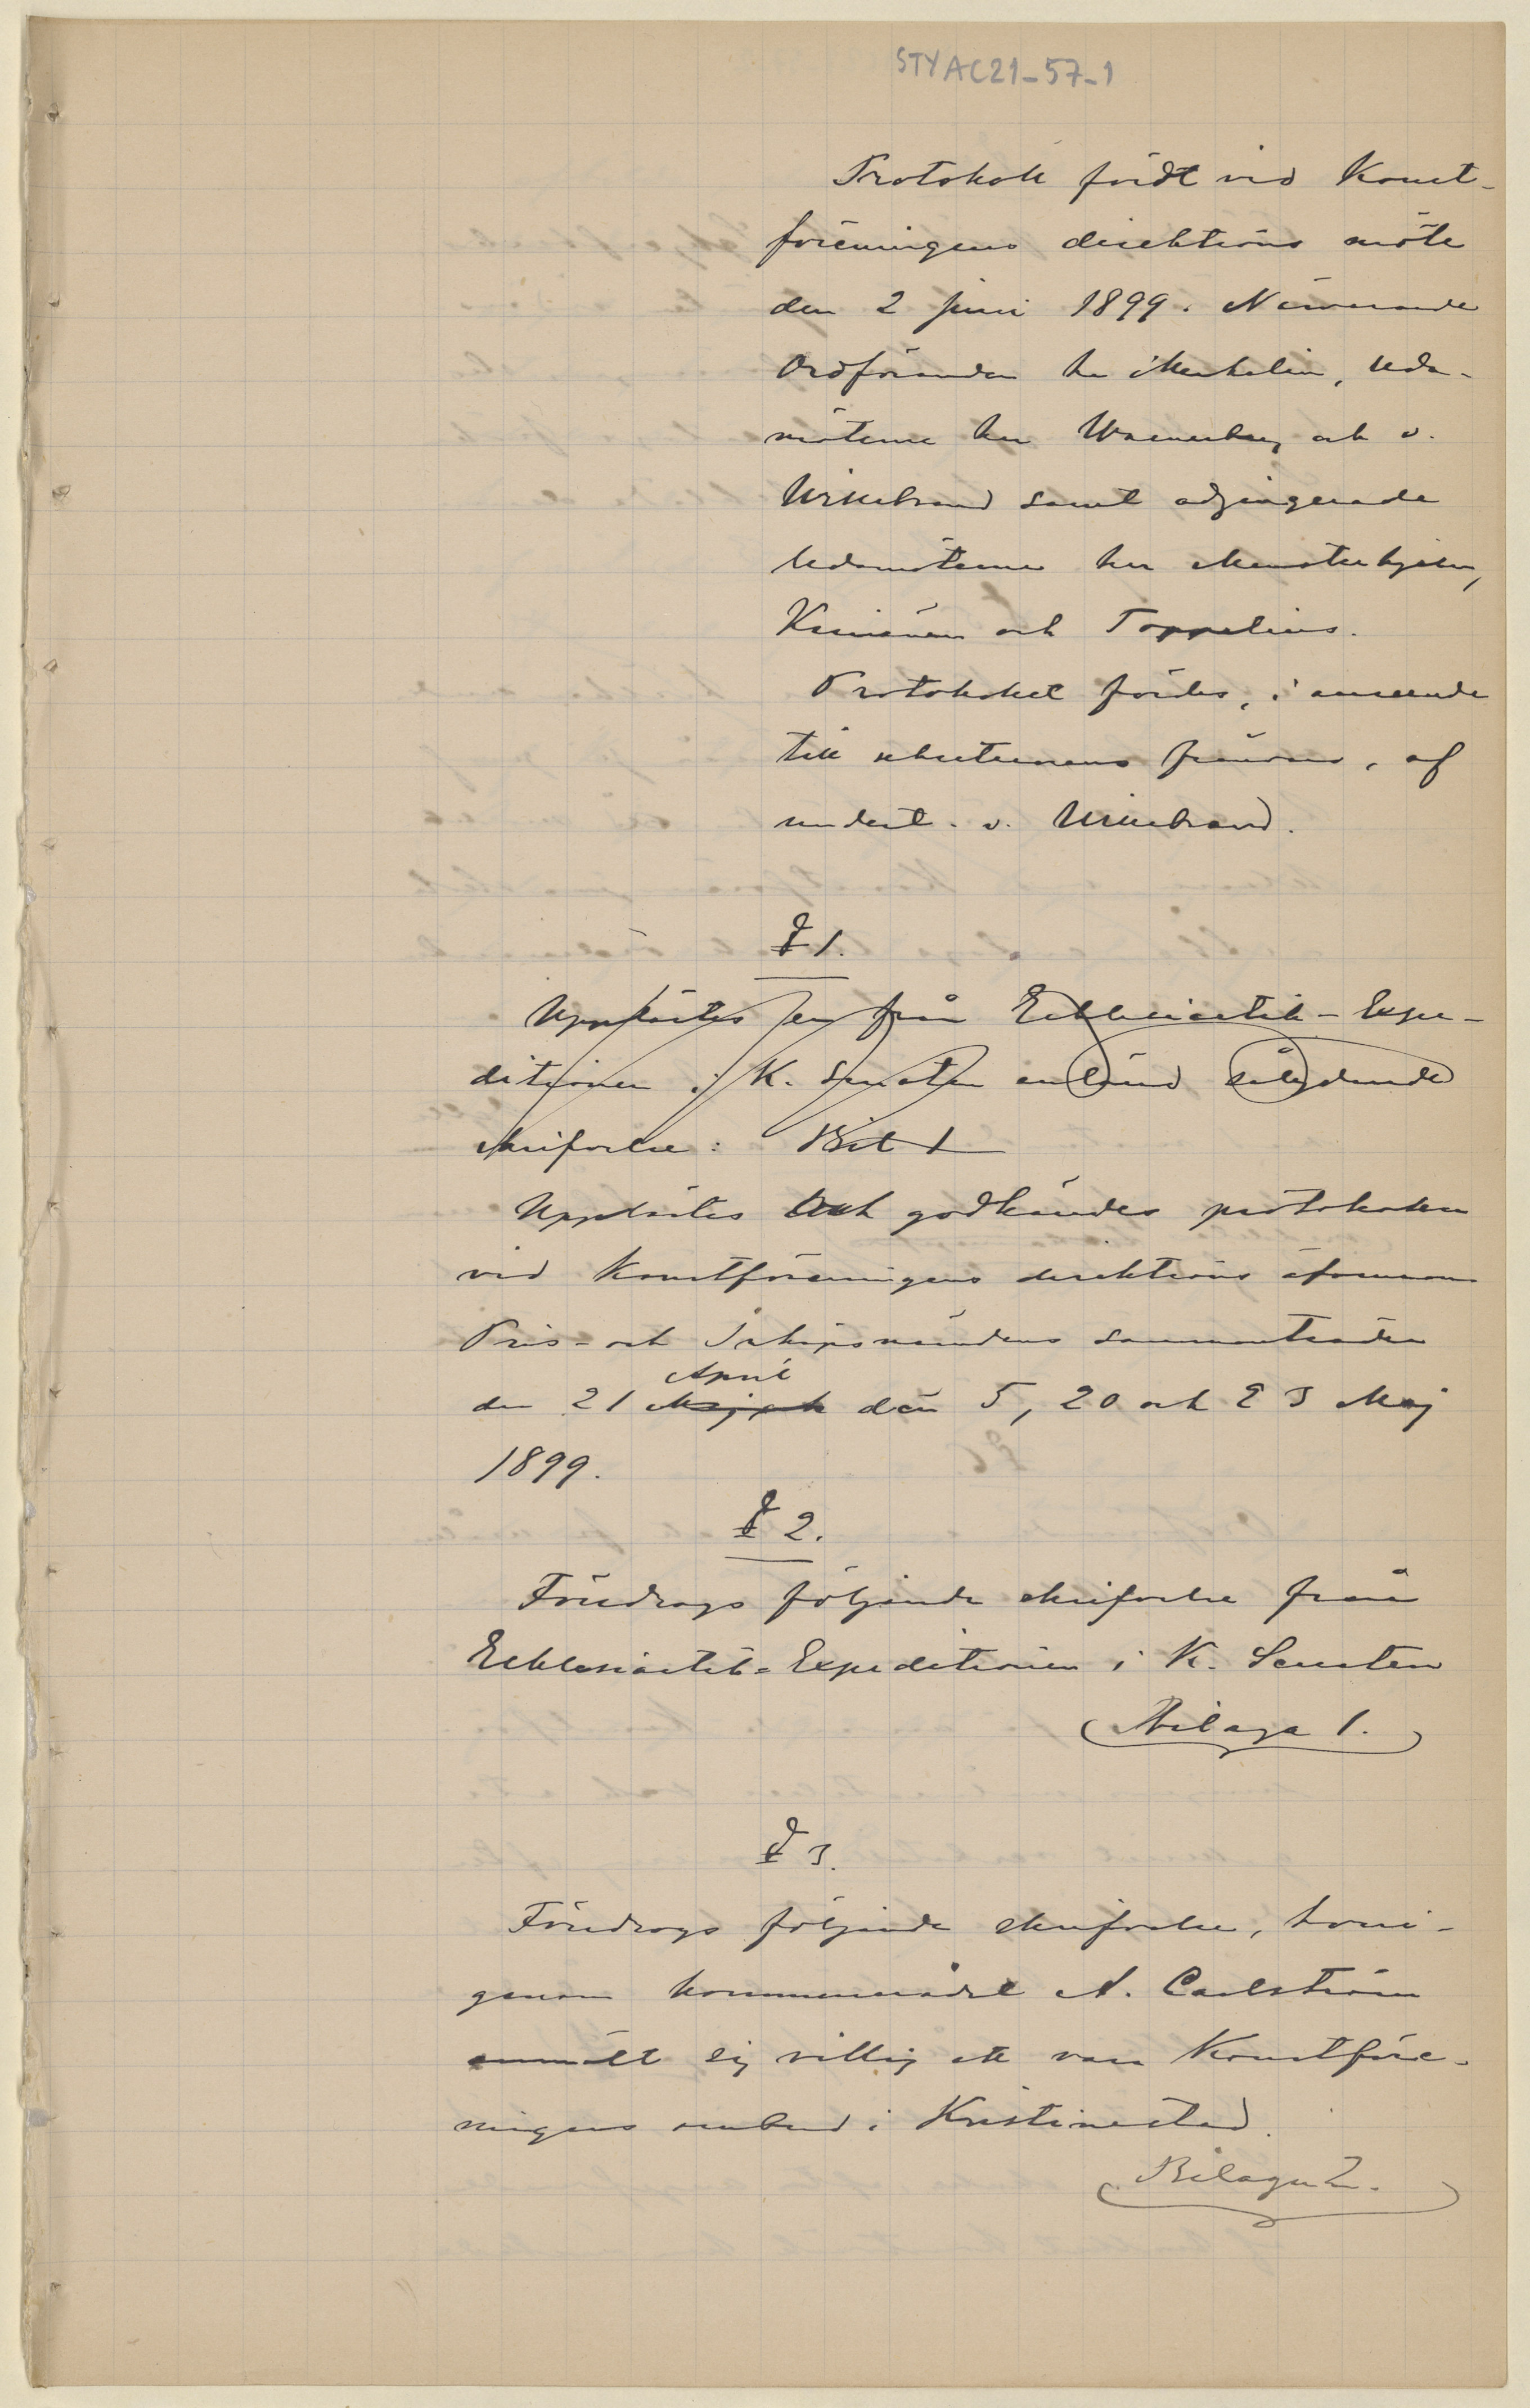 STYAC21-57-1
Protokoll fördt vid Konst-
föreningens direktions möte
den 2 juni 1899. Närvarande
Ordföranden hr Mechelin, leda-
möterne hrr Wasenberg och v.
Willebrand samt adjungerade
ledamöterne hrr Munsterhjelm,
och Toppelius.
Protokollet fördes, i anseende
till sekreterarens frånvaro, af
undert. v. Willebrand.
§ 1.
Upplästes en från Ecklesiastik-Expe-
ditionen i K. Senaten anländ sålydande
skrifvelse: Bil 1
Upplästes och godkändes protokollen
vid Konstföreningens direktions äfvensom
Pris- och Inköpsnämndens sammanträden
April
den 21 Maj och den 5, 20 och 23 Maj
1899.
§ 2.
Föredrogs följande skrifvelse från
Ecklesiastik-Expeditionen i K. Senaten
Bilaga 1.
§ 3.
Föredrogs följande skrifvelse, hvari-
genom kommunalrådet A. Carlström
anmält sig villig att vara Konstföre-
ningens ombud i Kristinestad.
Bilaga 2.